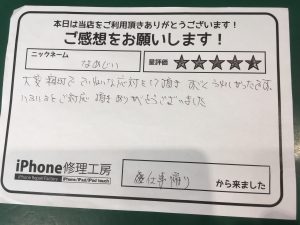 本日は当店をご利用頂きありがとうございます！
ご感想をお願いします！
ニックネーム
なめじい
星評価
★★★★★
大変 親切で ていねいな応対をして頂き すごくうれしかったです。
ご対応 頂き ありがとうございました
iPhone修理工房
iPhone Repair Factory
iPhone/iPad/iPod touch
仕事帰り
から来ました